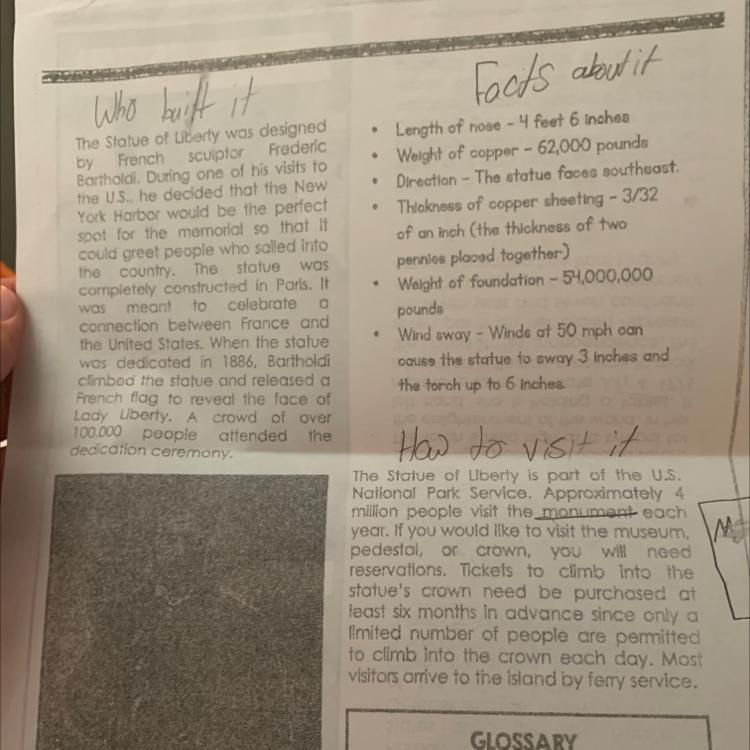 Who built it
The Statue of Liberty was designed
by French sculptor Frederic
Bartholdi. During one of his visits to
the U.S., he decided that the New
York Harbor would be the perfect
spot for the memorial so that it
could greet people who sailed into
the country. The statue was
completely constructed in Paris. It
was meant to celebrate a
connection between France and
the United States. When the statue
was dedicated in 1886, Bartholdi
climbed the statue and released a
French flag to reveal the face of
Lady Liberty. A crowd of over
100,000 people attended the
dedication ceremony.
Facts about it
• Length of nose – 4 feet 6 inches
• Weight of copper – 62,000 pounds
• Direction – The statue faces southeast.
• Thickness of copper sheeting – 3/32
of an inch (the thickness of two
pennies placed together)
• Weight of foundation – 54,000,000
pounds
• Wind sway – Winds at 50 mph can
cause the statue to sway 3 inches and
the torch up to 6 inches
How to visit it
The Statue of Liberty is part of the U.S.
National Park Service. Approximately 4
million people visit the monument each
year. If you would like to visit the museum,
pedestal, or crown, you will need
reservations. Tickets to climb into the
statue's crown need be purchased at
least six months in advance since only a
limited number of people are permitted
to climb into the crown each day. Most
visitors arrive to the island by ferry service.
GLOSSARY